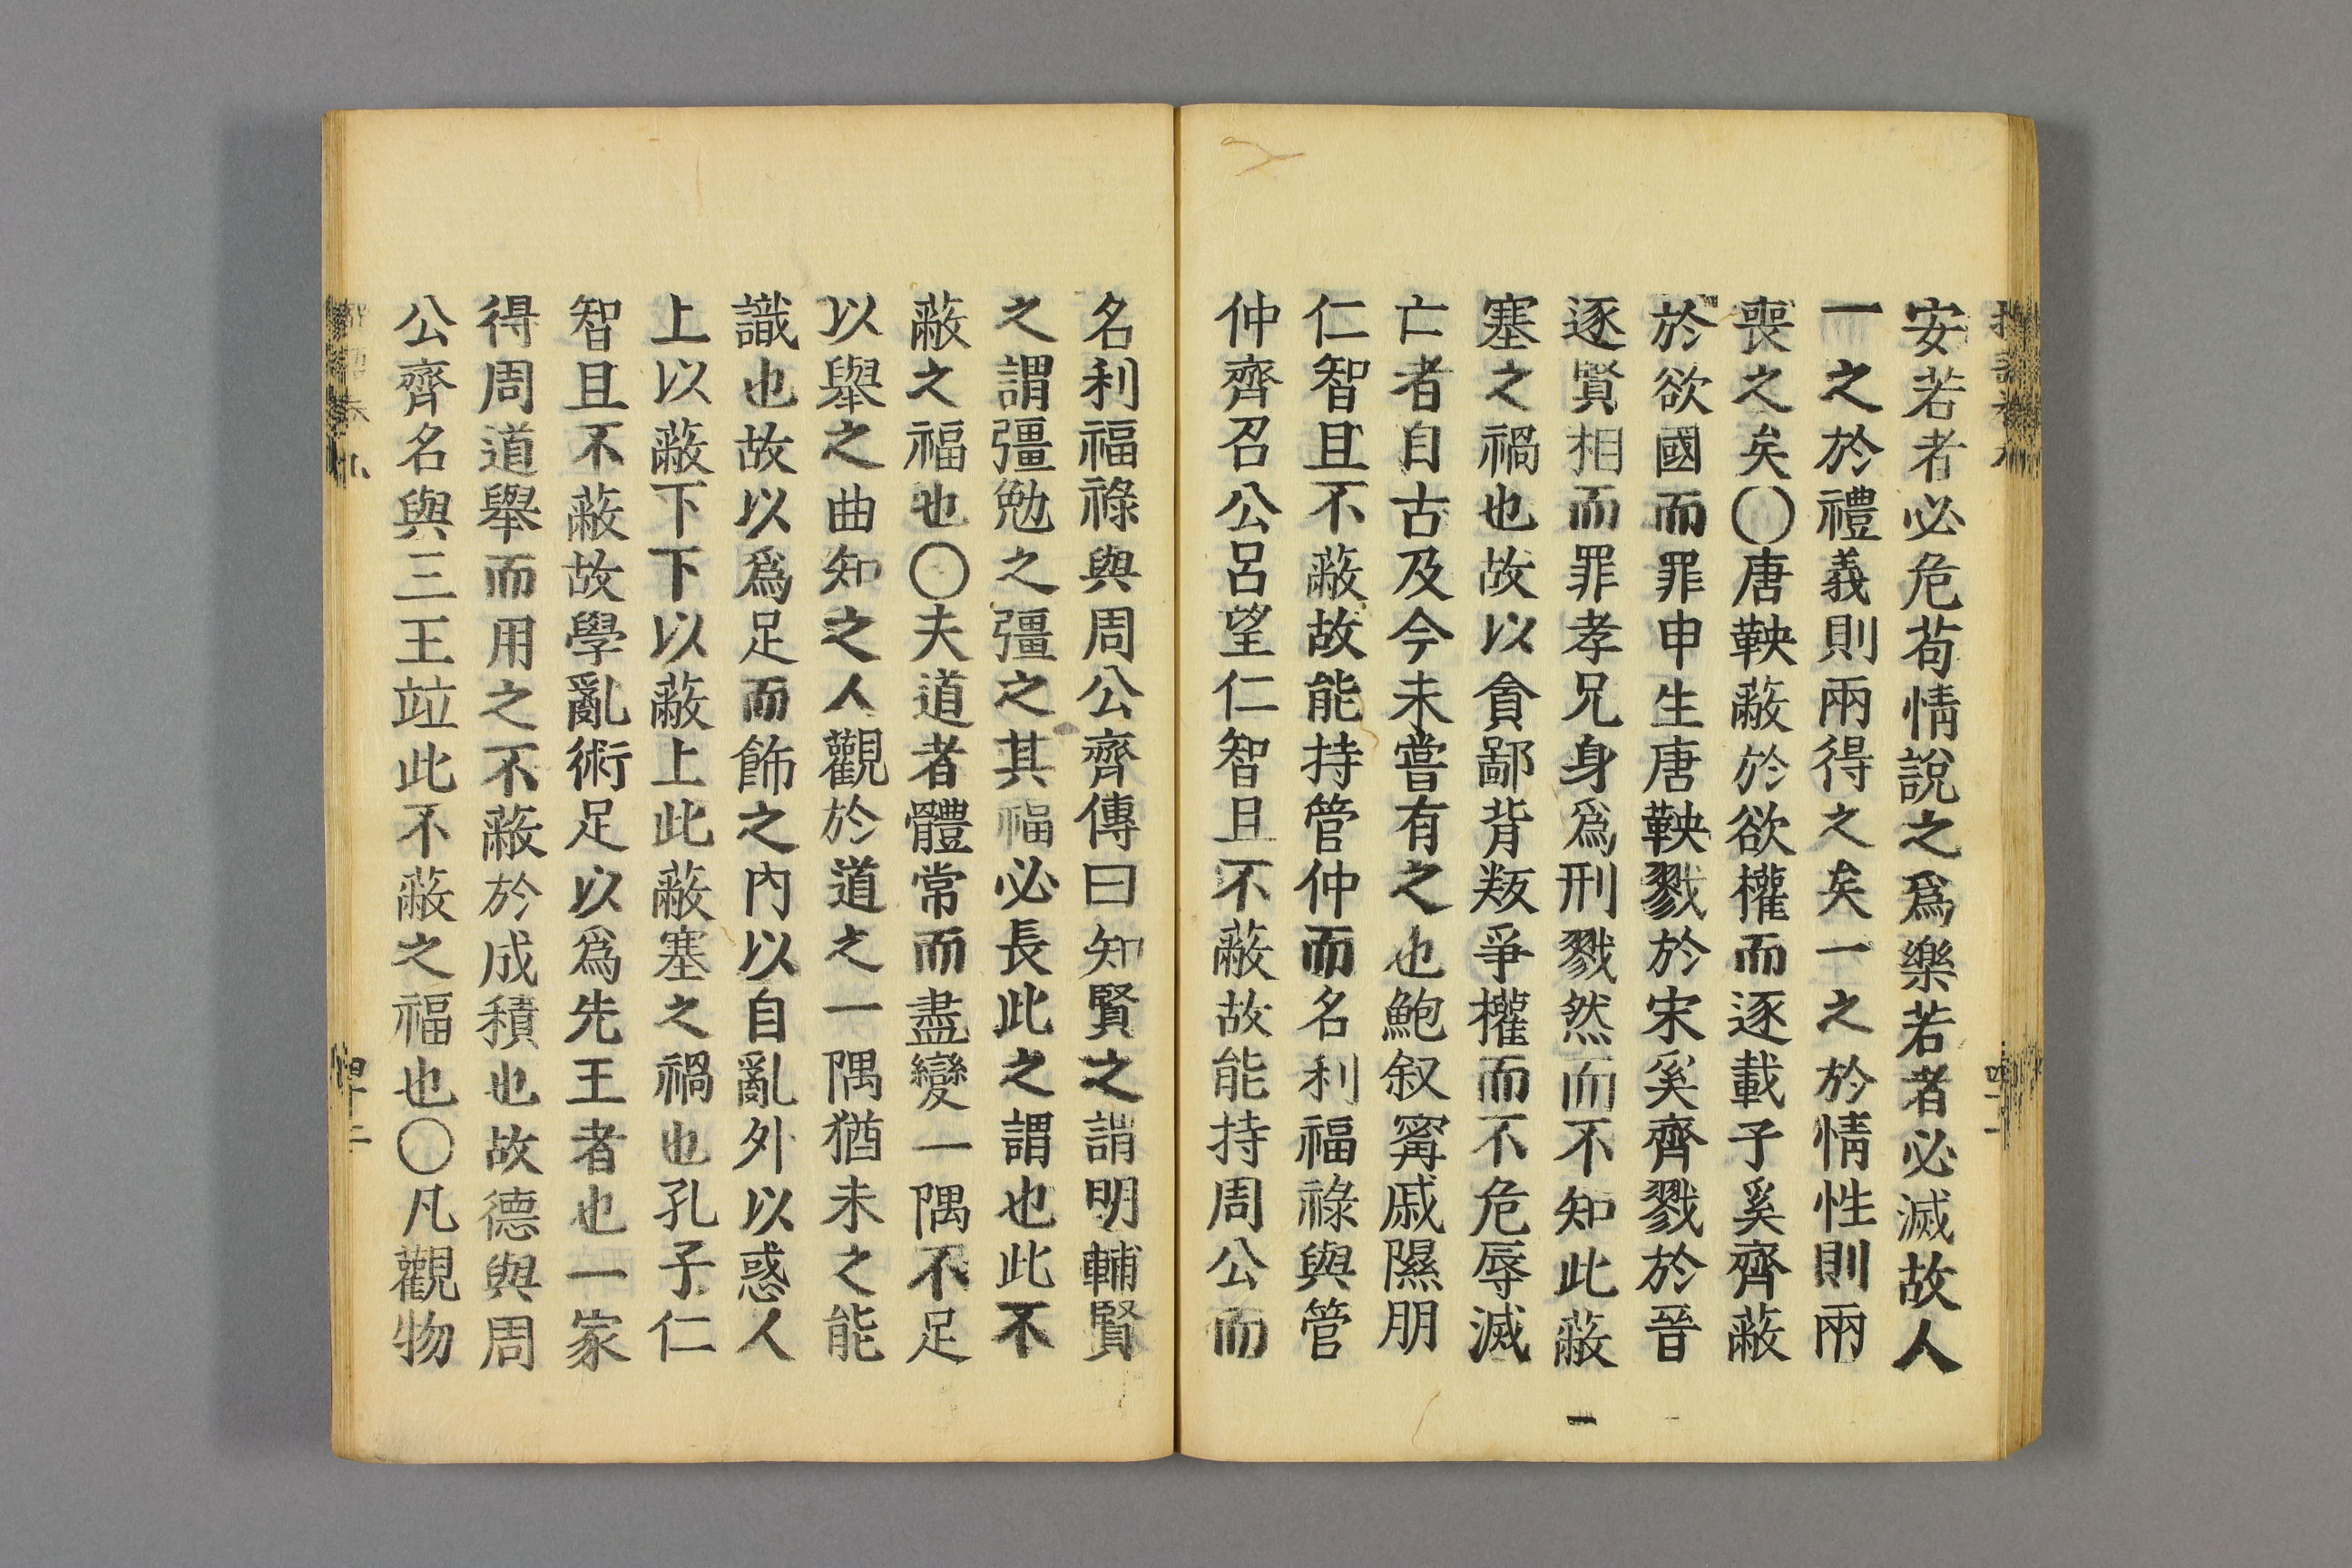 安若者必危苟情說之爲樂若者必滅故人
一之於禮義則兩得之矣一之於情性則兩
喪之矣〇唐鞅蔽於欲權而逐載子奚齊蔽
於欲國而罪申生唐鞅戮於宋奚齊戮於晉
逐賢相而罪孝兄身爲刑戮然而不知此蔽
塞之禍也故以貪鄙背叛爭權而不危辱滅
亡者自古及今未嘗有之也鮑叙甯戚隰朋
仁智且不蔽故能持管仲而名利福祿與管
仲齊召公呂望仁智且不蔽故能持周公而
名利福祿與周公齊傳曰知賢之謂明輔賢
之謂彊勉之彊之其福必長此之謂也此不
蔽之福也〇夫道者體常而盡變一隅不足
以舉之曲知之人觀於道之一隅猶未之能
識也故以爲足而飾之內以自亂外以惑人
上以蔽下下以蔽上此蔽塞之禍也孔子仁
智且不蔽故學亂術足以爲先王者也一家
得周道舉而用之不蔽於成積也故德與周
公齊名與三王竝此不蔽之福也〇凡觀物